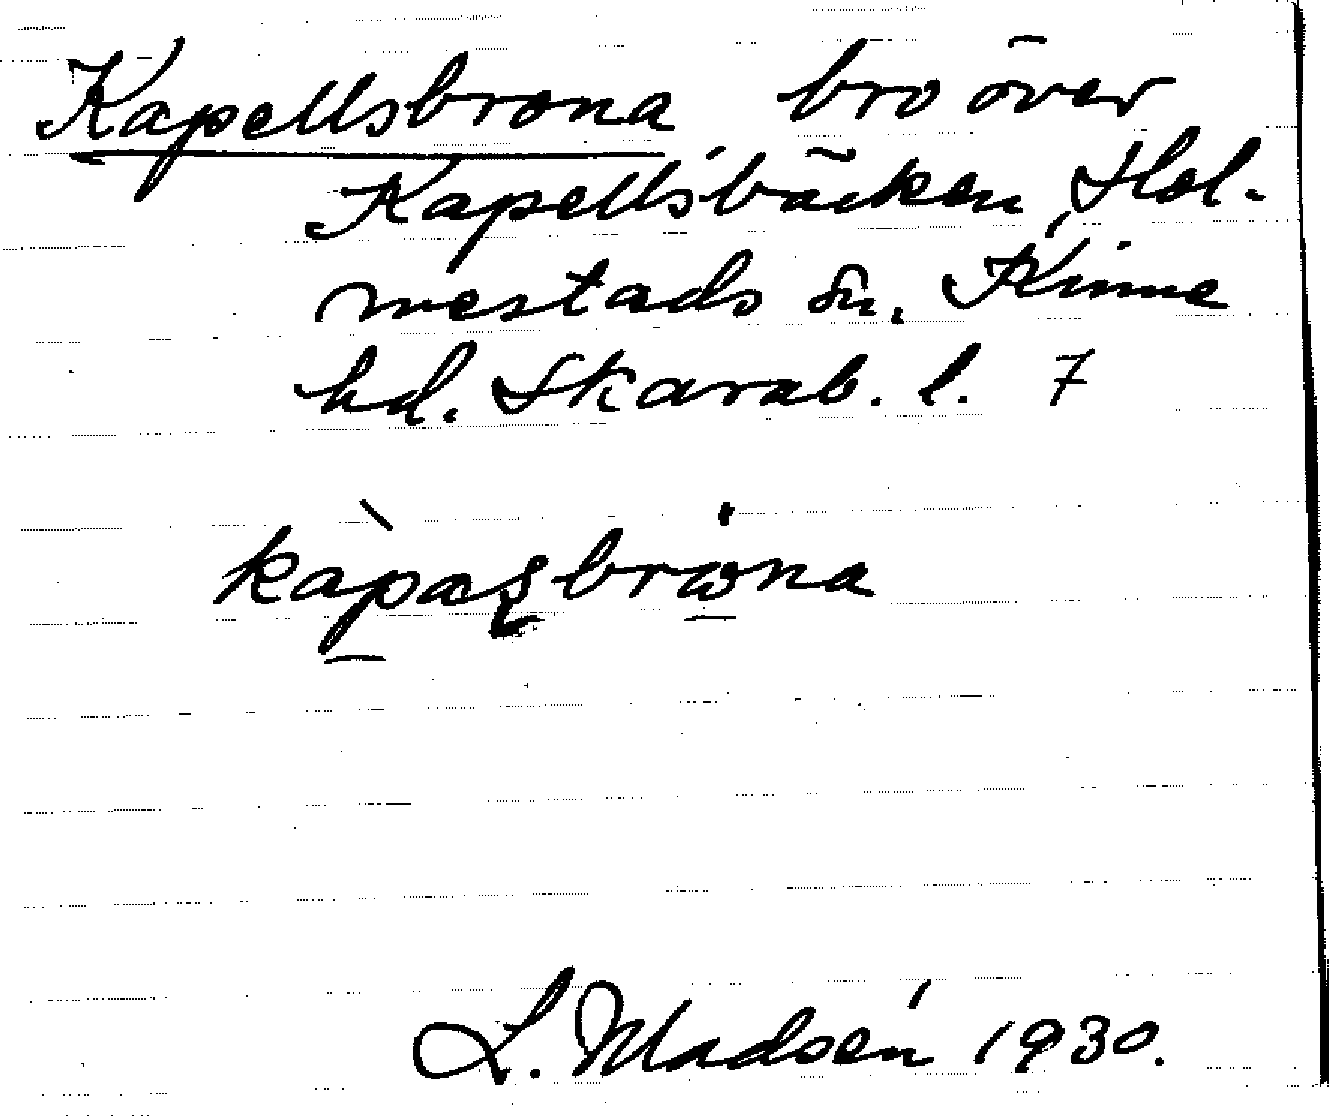 Kapellsbrona bro över
Kapellsbäcken, Hol-
mestads sn. Kinne
hd. Skarab. l. 7
L. Madsén 1930.